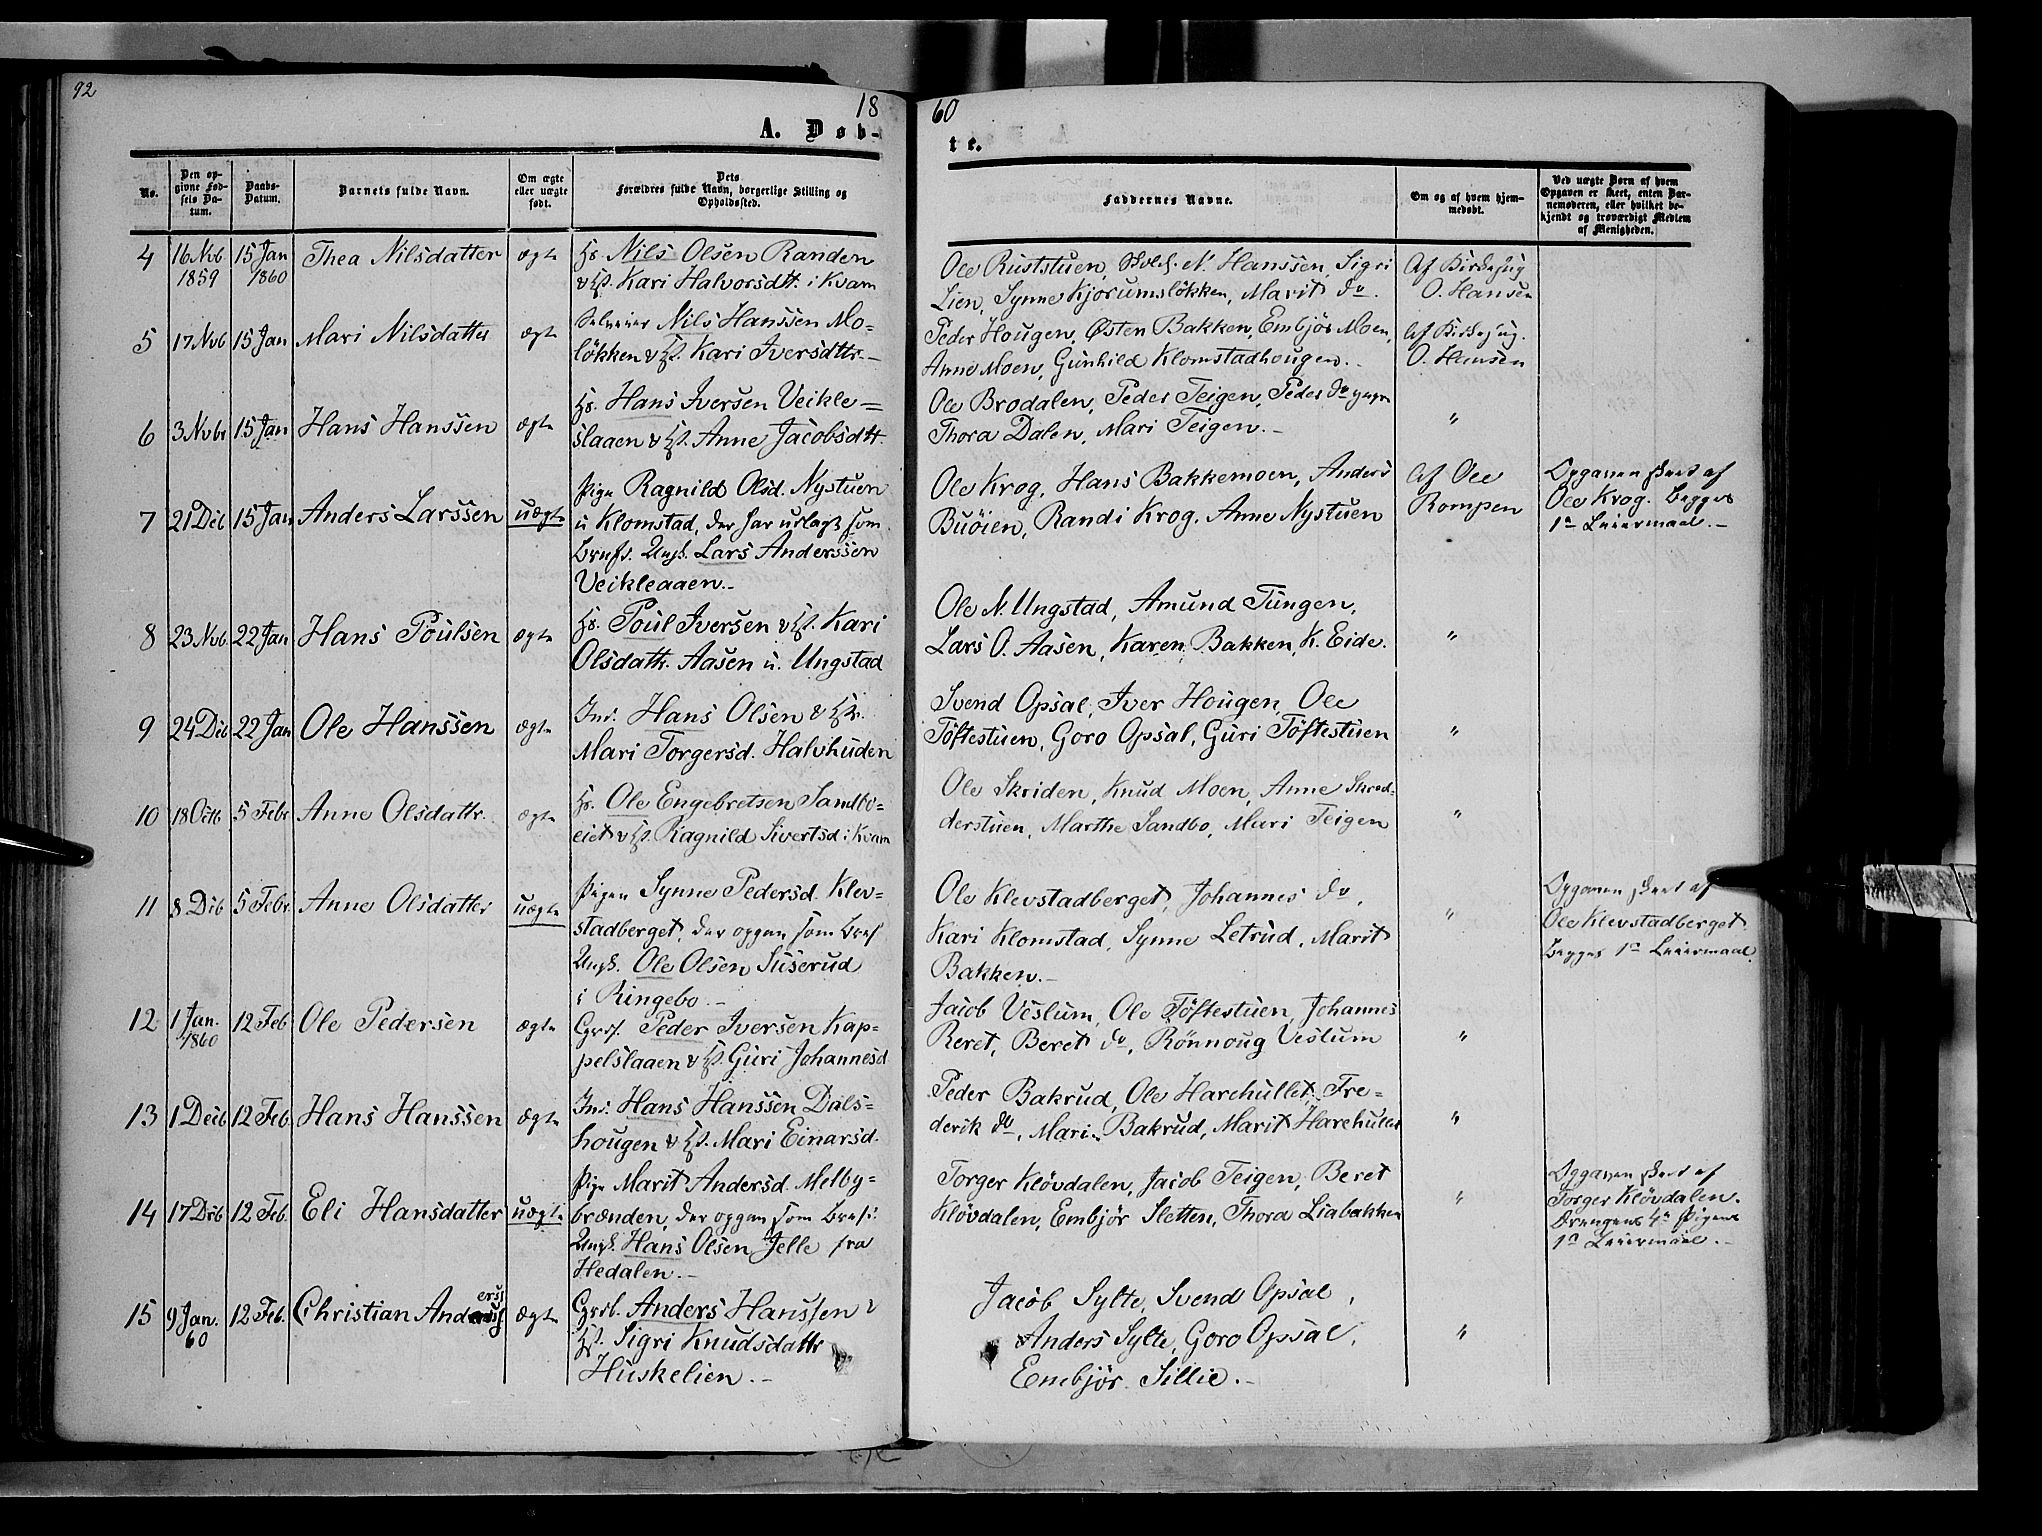 92
18 60
A. Døb-te.
No.
Den op-givne Fød-sels Da-tum.
Daabs-Datum.
Barnets fulde Navn.
Om ægte eller uægte født.
Dets Forældres fulde Navn, borgerlige Stilling og Opholdssted.
Faddernes Navne.
Om og af hvem hjem-medøbt.
Ved uægte Børn af hvem Opgaven er skeet, enten Bar-nemoderen, eller hvilket be-kjendt og troværdigt Medlem af Menigheden.
4 16 Nvb 1859 15 Jan 1860 Thea Nilsdatter ægte
Hs. Nils Olsen Randen
& Hst. Kari Halvorsdtt. i Kvam
Ole Ruststuen, Skolel. N. Hanssen, Sigri
Lien, Synne Kjorumsløkken, Marit do.
Af Kirkesug
O. Hansen
5 17 Nvb 15 Jan Mari Nilsdatter ægte
Selveier Nils Hanssen Mo-
løkken & Hst. Kari Iversdttr.
Peder Hougen, Østen Bakken, Embjør Moen,
Anne Moen, Gunhild Klomstadhougen.
af Kirkesug.
O. Hansen
6 3 Nvbr 15 Jan Hans Hanssen ægte
Hs. Hans Iversen Veikle=
slaaen & Hst. Anne Jacobsdtt.
Ole Brodalen, Peder Teigen, Peder do yngre
Thora Dalen, Mari Teigen.
"
7 21 Dcb 15 Jan Anders Larssen uægte
Pige Ragnild Olsd. Nystuen
u Klomstad, der har udlagt som
Brnfr. Ungk. Lars Anderssen
Veikleaaen.
Ole Krog, Hans Bakkemoen, Anders
Buøien, Randi Krog, Anne Nystuen
af Ole
Rompen
Opgaven skeet af
Ole Krog. Begges
1e Leiermaal.
8 23 Nvb. 22 Jan Hans Poulsen ægte
Hs. Poul Iversen & Hst. Kari
Olsdattr. Aasen u. Ungstad
Ole N. Ungstad, Amund Tungen,
Lars O. Aasen, Karen Bakken, K. Eide.
"
9 24 Dcb 22 Jan Ole Hanssen ægte
Ind. Hans Olsen & Hst.
Mari Torgersd. Halvhuden
Svend Opsal, Iver Hougen, Ole
Tøftestuen, Goro Opsal, Guri Tøftestuen
"
10 18 Octb 5 Febr Anne Olsdattr. ægte
Hs. Ole Engebretsen Sandbo=
eiet & Hst. Ragnild Sivertsd i Kvam
Ole Skriden, Knud Moen, Anne Skred-
derstuen, Marthe Sandbo, Mari Teigen
"
11 8 Dcb 5 Febr Anne Olsdatter uægte
Pigen Synne Pedersd. Klev-
stadberget, der opgav som Brnf
Ungk. Ole Olsen Suserud
i Ringebo.
Ole Klevstadberget, Johannes do,
Kari Klomstad, Synne Letrud, Marit
Bakken.
"
Opgaven skeet af
Ole Klevstadberget
Begges 1e Leiermaal.
12 1 Jan. 1860 12 Feb Ole Pedersen ægte
Grdf. Peder Iversen Kap-
pelslaaen & Hst. Guri Johannesd
Jacob Veslum, Ole Tøftestuen, Johannes
Reret, Beret do, Rønnoug Veslum
"
13 1 Decb 12 Feb. Hans Hanssen ægte
Ind. Hans Hanssen Dals-
hougen & Hst. Mari Einarsd.
Peder Bakrud, Ole Harehullet, Fre-
derik do, Mari Bakrud, Marit Harehullet
"
14 17 Dcb 12 Feb. Eli Hansdatter uægte
Pige Marit Andersd. Melby-
brænden, der opgav som Brnf:
Ungk. Hans Olsen Jelle fra
Hedalen.
Torger Kløvdalen, Jacob Teigen, Beret
Kløvdalen, Embjør Sletten, Thora Liabakken
"
Opgaven skeet af
Torger Kløvdalen.
Drengens 4e Pigens
1e Leiermaal.
15 9 Jan. 60 12 Feb. Christian Anderss ægte
Grdf. Anders Hanssen &
Hst. Sigri Knudsdattr
Huskelien.
Jacob Sylte, Svend Opsal,
Anders Sylte, Goro Opsal,
Embjør Sillie.
"